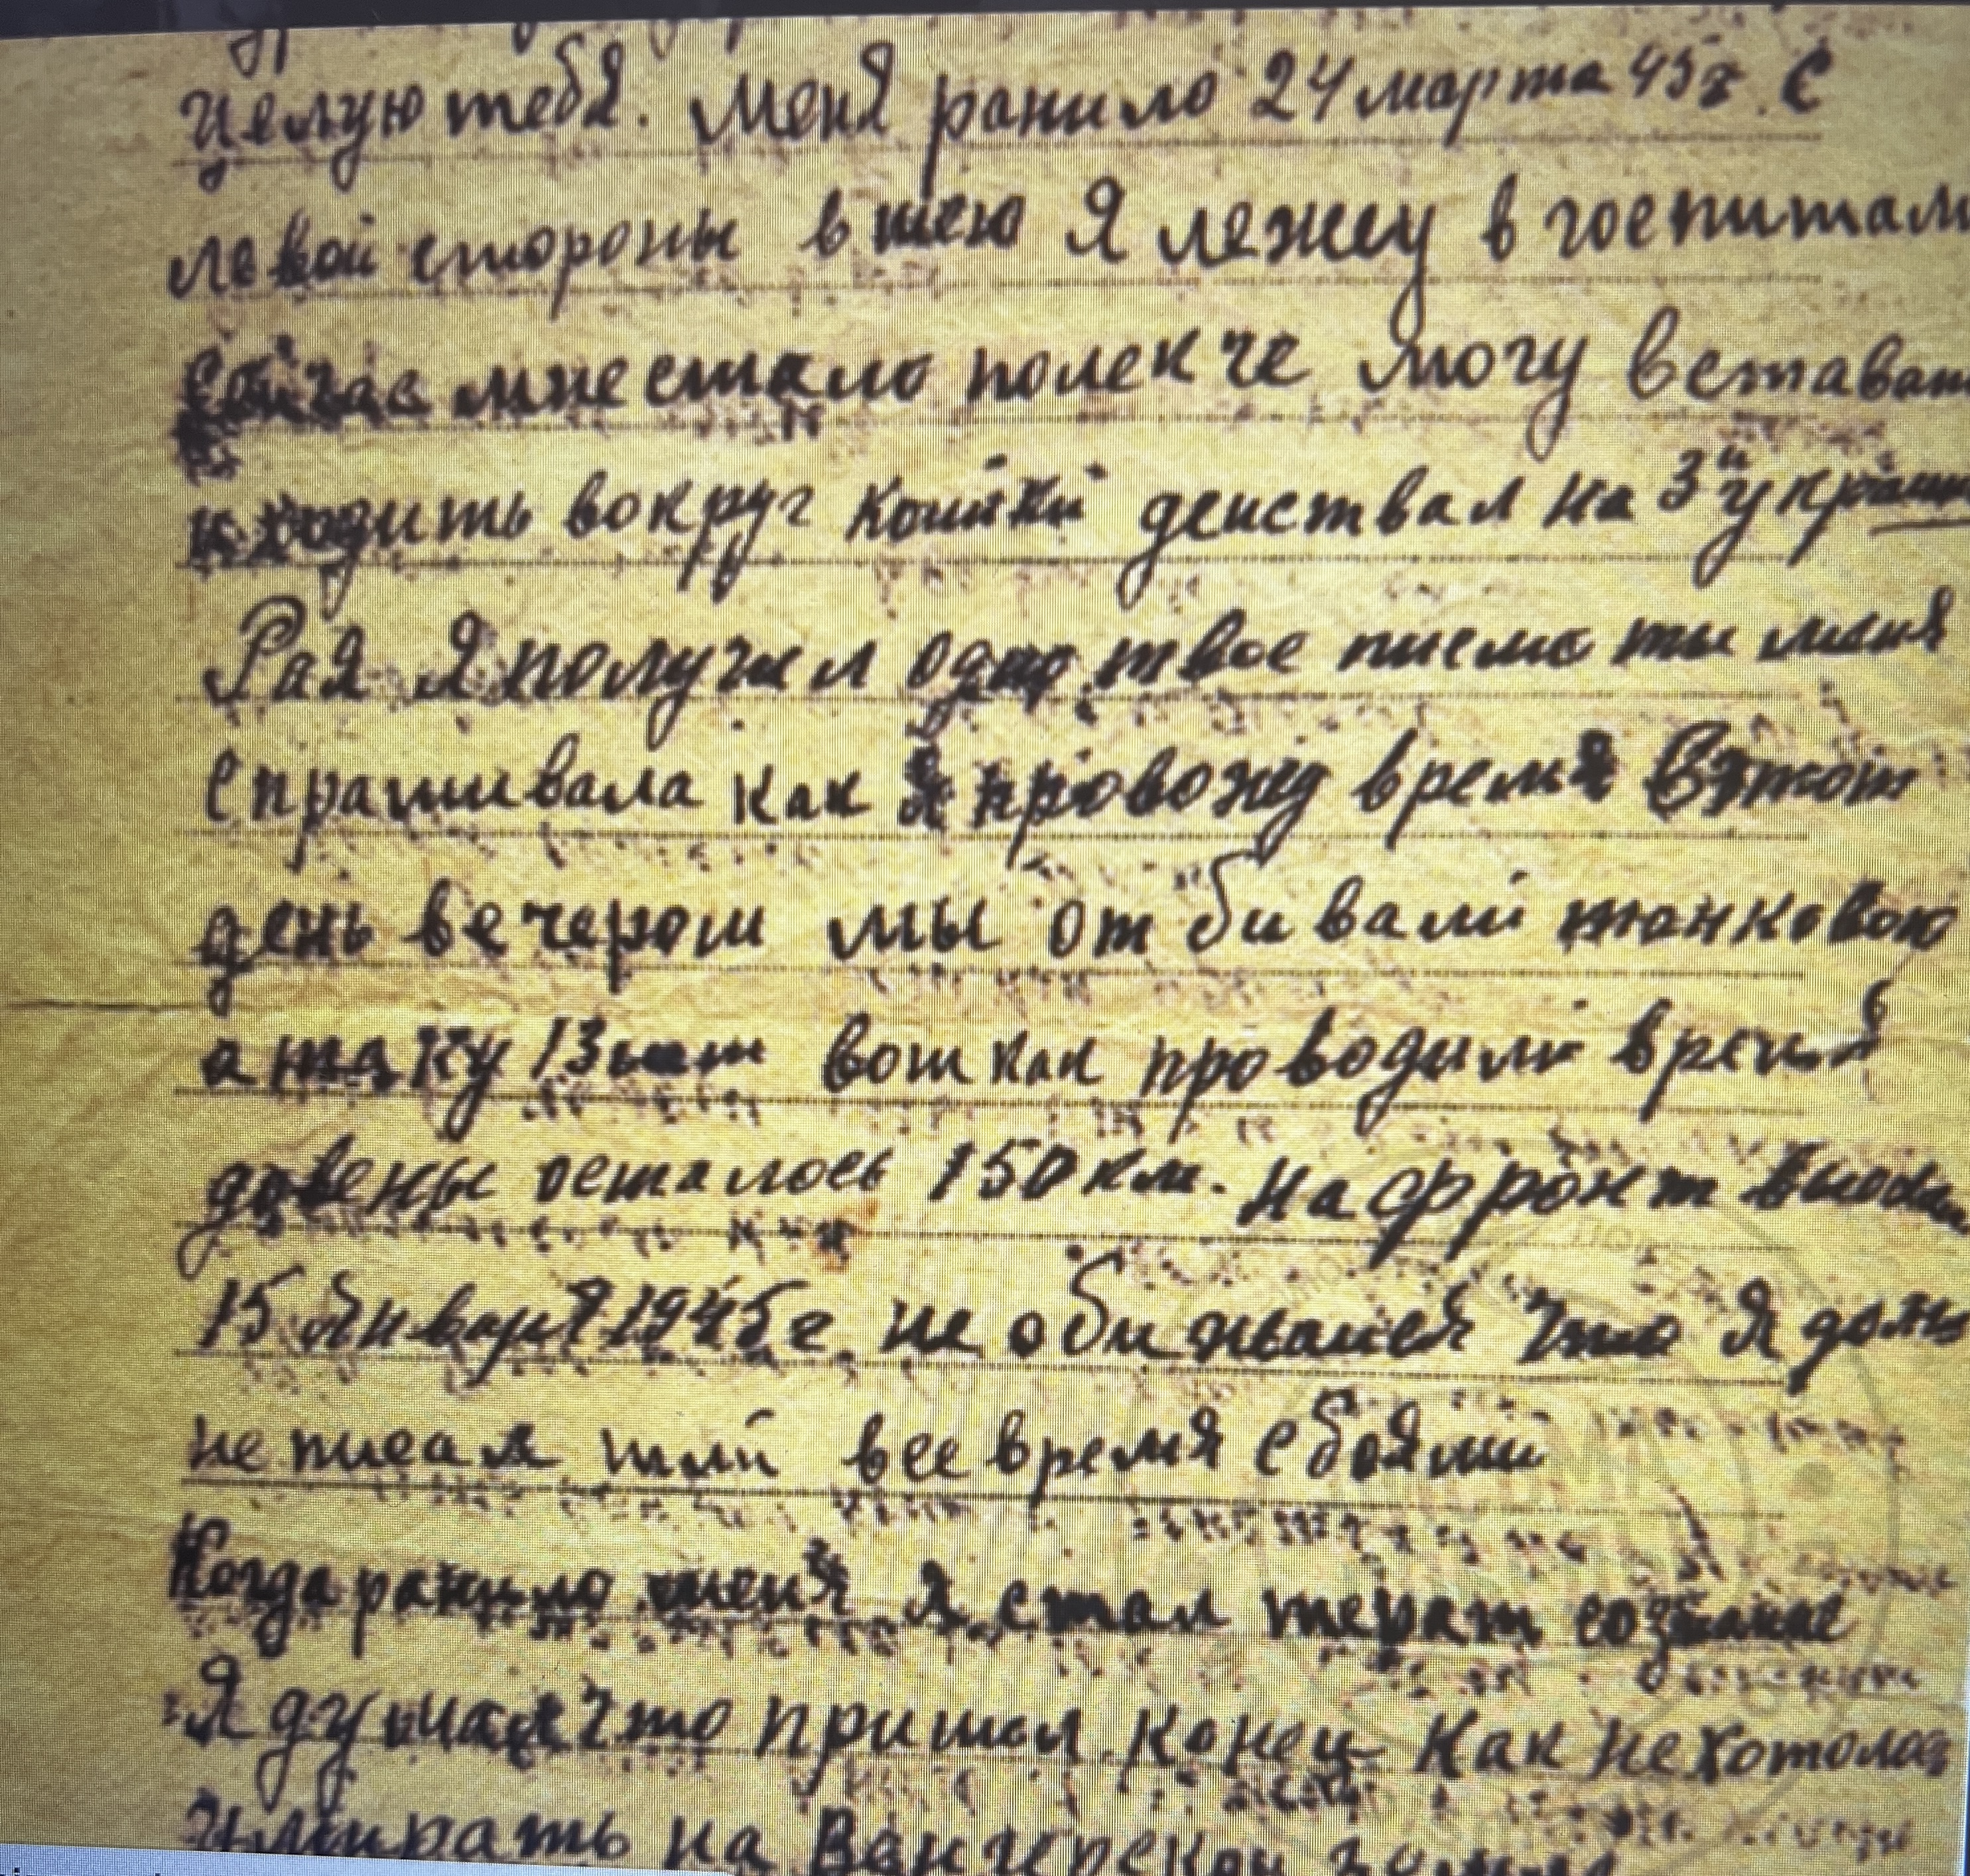 целую тебя. Меня ранило 24 марта 45г. С
левой стороны в шею Я лежу в госпитал
Сейчас мне стало полекче Могу встават
и ходить вокруг койки действал на 3й Украин
Рая Я получил одно твое писмо ты меня
спрашивала как Я провожу время В этот
день вечером мы отбивали танковою
атаку 13 вот как проводили время
до вены осталось 150 км. На фронт
15 Января 1945г. не обижайся что Я долго
не писал шли все время с боями
Когда ранило меня Я стал терят сознание
Я думал что пришол конец Как не хотолас
Умирать на Венгерской земли